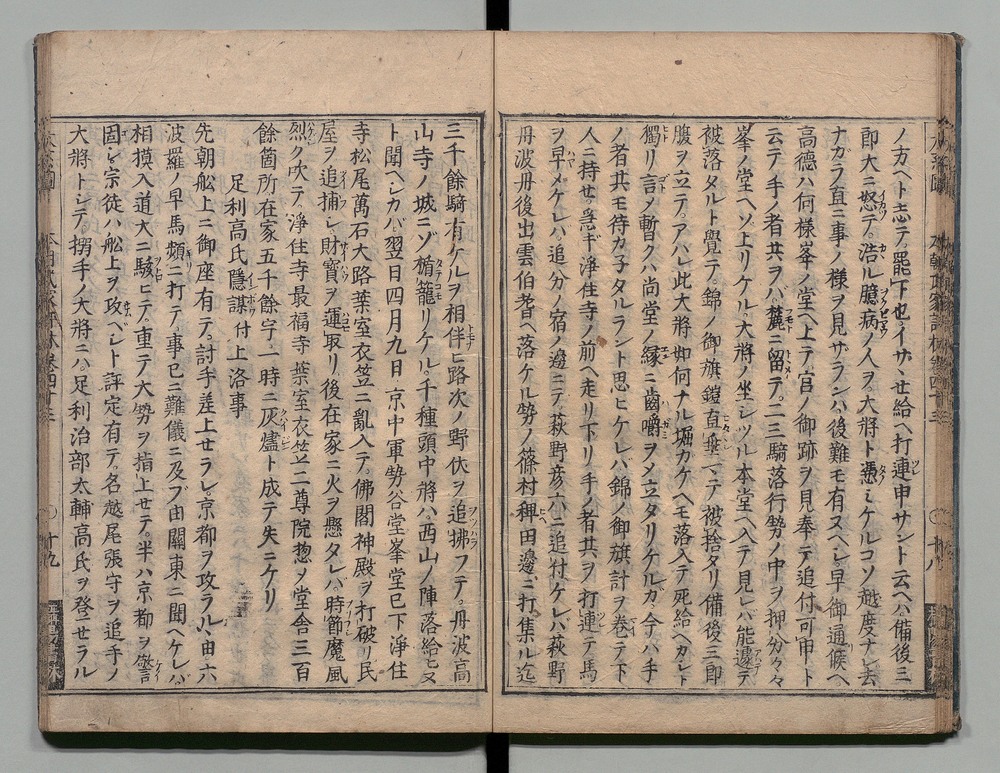 ノ方ヘト志テ罷下也イザヽセ給ヘ打連申サント云ヘハ備後三
即大ニ怒テ浩ル臆病ノ人ヲ大將ト憑ミケルコソ越度ナレ去
ナガラ直ニ事ノ様ヲ見サランハ後難モ有ヌヘシ早御通候ヘ
高德ハ何様峯ノ堂ヘ上テ官ノ御跡ヲ見奉テ追付可申ト
云テ手ノ者共ヲバ麓ニ留テ二三騎落行勢ノ中ヲ押分々々
峯ノ堂ヘソ上リケル大將ノ坐シツル本堂ヘ入テ見レハ能遽テ
被落タルト覺テ錦ノ御旗鎧直垂マテ被捨タリ備後三郎
腹ヲ立テアハレ此大將如何ナル堀カケヘモ落入テ死給ヘカシト
獨リ言ノ暫クハ尚堂ノ縁ニ齒嚼ヲメ立タリケルカ今ハ手
ノ者共モ待カ子タルラント思ヒケレバ錦ノ御旗計ヲ卷テ下
人ニ持セ急ギ淨住寺ノ前ヘ走リ下リ手ノ者共ヲ打連テ馬
ヲ早メケレハ追分ノ宿ノ邊ニテ荻野彦六ニ追付ケレバ荻野
丹波丹後出雲伯耆ヘ落ケル勢ノ篠村稗田邊ニ打集ル迄
三千餘騎有ケルヲ相伴ヒ路次ノ野伏ヲ追拂フテ丹波高
山寺ノ城ニゾ楯籠リケル千種頭中將ハ西山ノ陣落給ヒヌ
ト聞ヘシカバ翌日四月九日京中軍勢谷堂峯堂已下淨住
寺松尾萬石大路葉室衣笠ニ亂入テ佛閣神殿ヲ打破リ民
屋ヲ追捕シ財寶ヲ運取リ後在家ニ火ヲ懸タレバ時節魔風
烈ク吹テ淨住寺最福寺葉室衣笠二尊院惣メ堂舎三百
餘箇所在家五千餘宇一時ニ灰燼ト成テ失ニケリ
足利高氏隱謀付上洛事
先朝舩上ニ御座有テ討手差上セラレ京都ヲ攻ラルヽ由六
波羅ノ早馬頻ニ打テ事已ニ難儀ニ及ブ由關東ニ聞ヘケレバ
相摸入道大ニ駭ヒテ重テ大勢ヲ指上セテ半ハ京都ヲ警
固シ宗徒ハ舩上ヲ攻ヘシト評定有テ名越尾張守ヲ追手ノ
大將トシテ搦手ノ大將ニハ足利治部太輔高氏ヲ登セラル